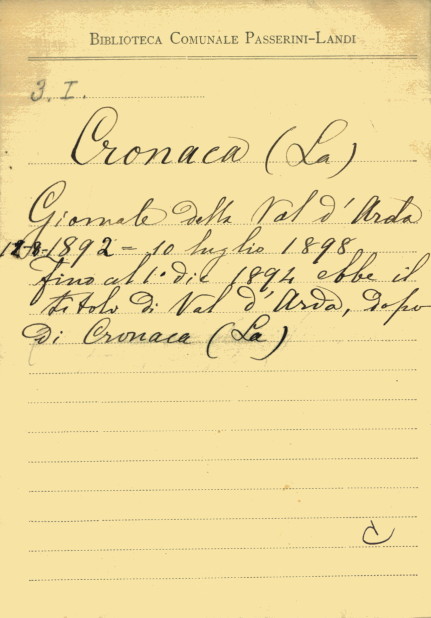 BIBLIOTECA COMUNALE PASSERINI-LANDI
3. I.
Cronaca (La)
Giornale della Val d'Arda
1892 = 10 luglio 1898
fino al 1° dic 1894 ebbe il
titolo di Val d'Arda, dopo
di Cronaca (La)
C